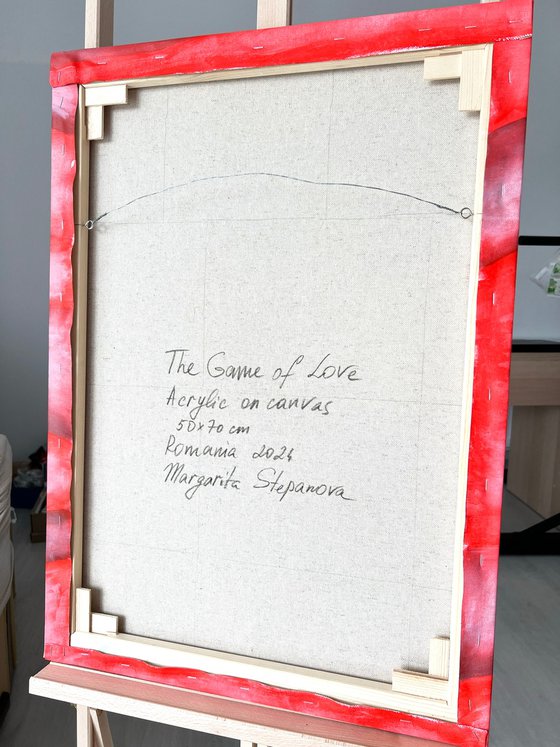 The Game of Love
Acrylic on canvas
50x70 cm
Romania 2024
Margarita Stepanova